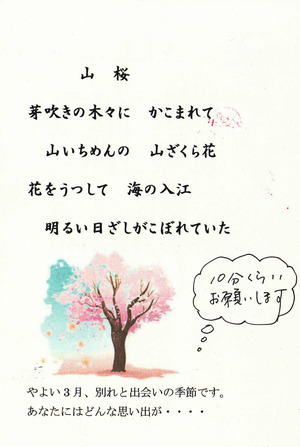 山　桜
芽吹きの木々に　かこまれて
山いちめんの　山ざくら花
花をうつして　海の入江
明るい日ざしがこぼれていた
10分くらい
お願いします
やよい３月、別れと出会いの季節です。
あなたにはどんな思い出が・・・・